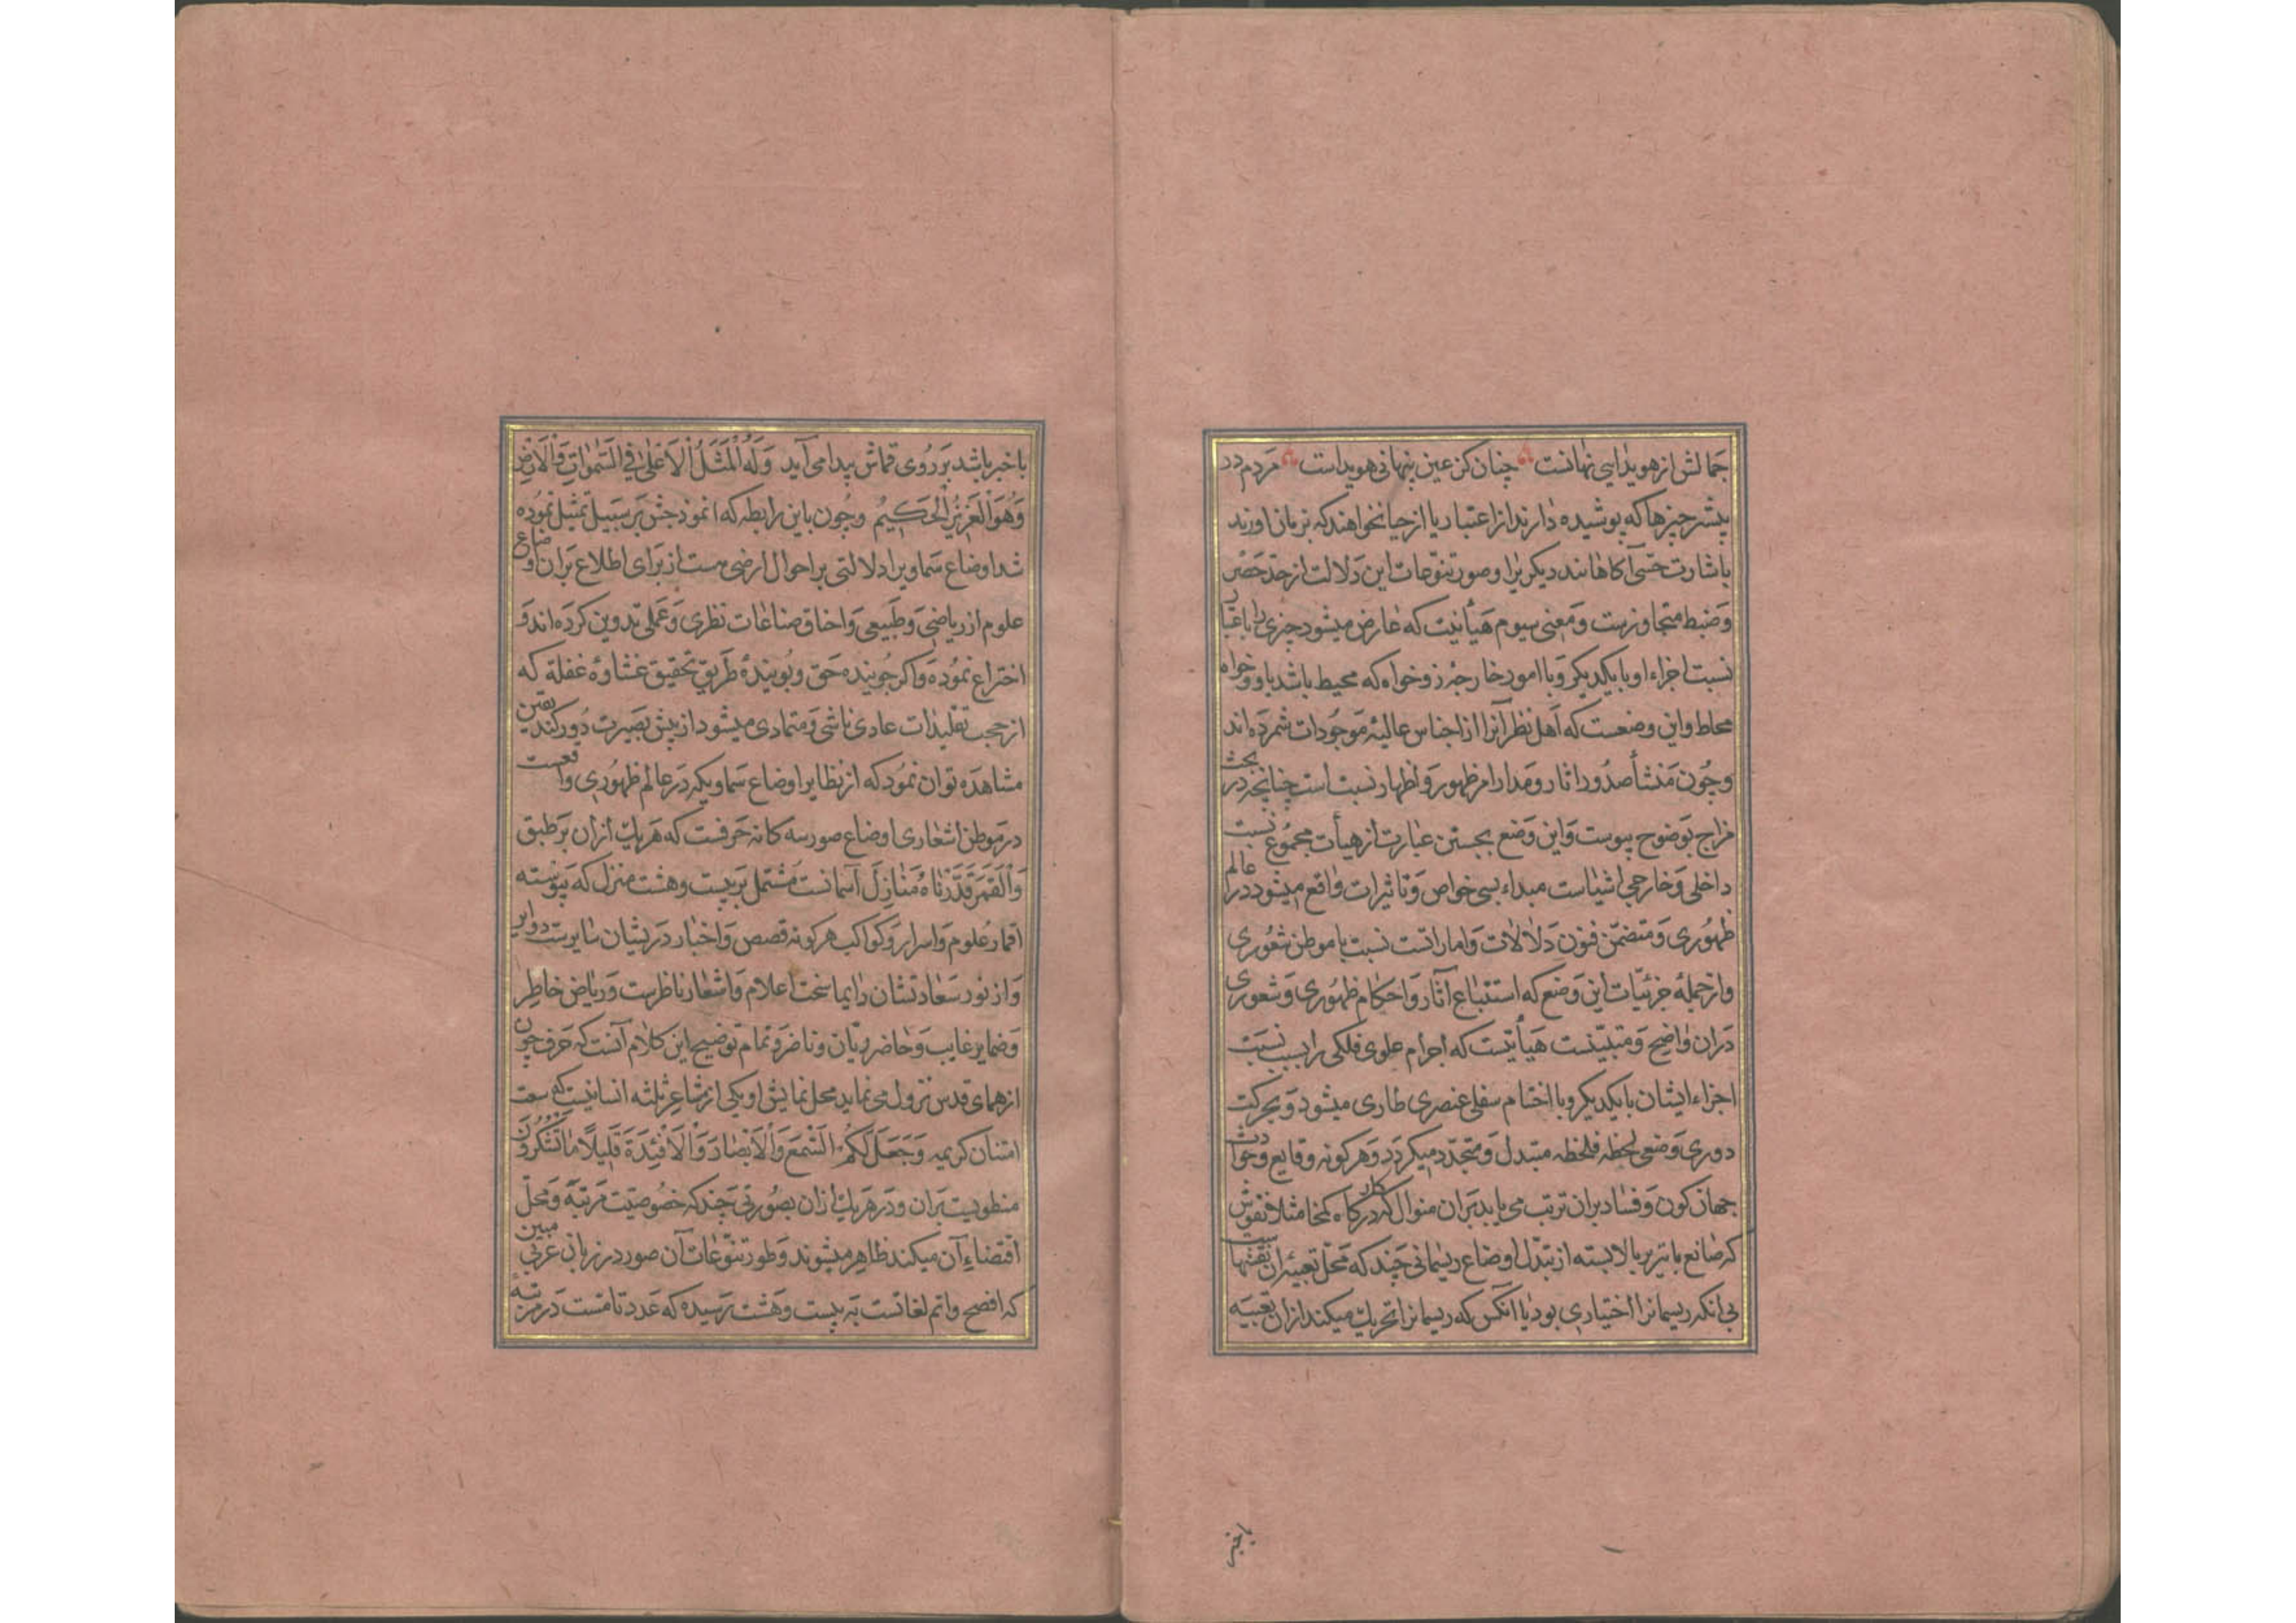 جمالش از هویدایی نهانست چنان کز عین پنهانی هویداست مردم در
بیشتر چیزها که پوشیده دارند از اعتبار یا از حیا نخواهند که بزبان اورند
باشارت حسّی آگاهانند دیگریرا و صور تنوّعات این دلالت از حدّ حَصْر
وَضبط متجاوزست وَمعنی سیوم هَیأتیت که عٰارض میشود چیزی را باعتبار
نسبت اجزاء او با یکدیکر وَبا امور خارجه زو خواه که محیط باشد باو وخواه
محاط واین وضعست که اَهل نظر آنرا از اجناس عالیهٔ مَوجُودات شمرده‌اند
وچُون مَنشأ صدُور اثار ومَدار امر ظهور وَاظهار نسبت است چنانچه در بحث
مزاج بَوضوح پیوست وَاین وَضع بجستن عبٰارت از هیأت مجمُوع نسبت
داخلی وَخارجی اشیٰاست مبداء بسی خواص وَتاثیرات وٰاقع میشود در عالم
ظهُوری وَمتضمّن فنون دَلالات وَاماراتست نسبت با موطن شعُوری
واز جملهٔ جزئیّات این وَضع که استنباع آثار وَاحکام ظهُوری وَشعوری
دَران وٰاضح وَمتبیّنست هَیأتیست که اجرام علوی فلکی را بسبب نسبَت
اجزاء ایشان با یکدیکر وبا اختام سفلی عنصری طاری میشود وَبحرکت
دوری وَضعی لحظه فلحظه متبدل وَمتجدّد میکردد وَهر کونه وقایع وحوادث
جهان کون وَفسٰاد بران ترتب می یابد بَران منوال که در کارگاه کمخا مثلا نقوش
که صٰانع با تیر بالا بسته از تبدّل اوضاع ریسمانی چند که مَحلّ تعبیهٔ ان نقشها
بی انکه ریسمانرا اختیاری بود یا انکس که ریسمانرا تحریک میکند از ان تعبیَه
باخبر
باخبر باشد بَر رُوی قماش پیدا می آید وَلَهُ الْمَثَلُ الْاَعْلیٰ فِی السَّمٰوٰاتِ وَالْاَرْضِ
وَهُوَ الْعَزیْزُ الْحَکیمُ وچُون باین رابطه که انموذجش بَر سَبیل تمثیل نمُوده
شد اوضاع سَماویرا دلالتی بر احوال ارضی هست از بَرای اطلاع بَران اوضاع
علوم از ریاضی وَطبیعی وَاخاق صناعات نظری وَعَملی تدوین کرده‌اند وَ
اختراع نمُوده وَاکر جُوینده حَق وپُویندهٔ طَریق تحقیق غشاوهٔ غفلة که
از حجب تقلیدات عادی ناشی وَمتمادی میشود از پیش بصَیرت دُور کند یقین
مشاهَده توان نمُود که از نظایر اوضاع سَماویکه دَر عالم ظهُوری واقعست
در مَوطن اشعٰاری اوضاع صور سه کانه حَرفست که هَر یک از ان بَر طبق
وَالْقَمَرَ قَدَّرْنٰاهُ مَنٰازِلَ آسمانست مُشتمل بَر بیست وهشت منزل که پَیوسته
اقمار عُلوم وَاسرار وَکواکب هر کونه قصص وَاخبار دَریشان سٰایرست دوایر
وَاز نور سَعٰادتشان دایما سٰاحت اعلام وَاشعٰار نٰاظرست وَریٰاض خاطِر
وَضمایر غایب وَحٰاضر ریّان وناضر وَتمام توضیح این کلام آنست که حَرف چون
از همای قدس نزول می نماید محل نمایش او یکی از مشٰاعر ثلثه انسانیست که سمت
امتنان کریمه وَجَعَلَ لَکُمُ السَّمْعَ وَالْاَبْصٰارَ وَالْاَفْئِدَةَ قَلِیْلًا مٰا تَشْکُرُوْنَ
منطویست بَران ودَر هَر یک از ان بصُورتی چَند که خصُوصیّت مَرتبَه وَمحلّ
اقتضٰاءِ آن میکند ظاهِر میشوند وَطور تنوّعٰات آن صور در زبان عربی مبین
که افصح واتم لغاتست بَه بیست وَهَشت رَسیده که عَدد تامست دَر مرتبهٔ